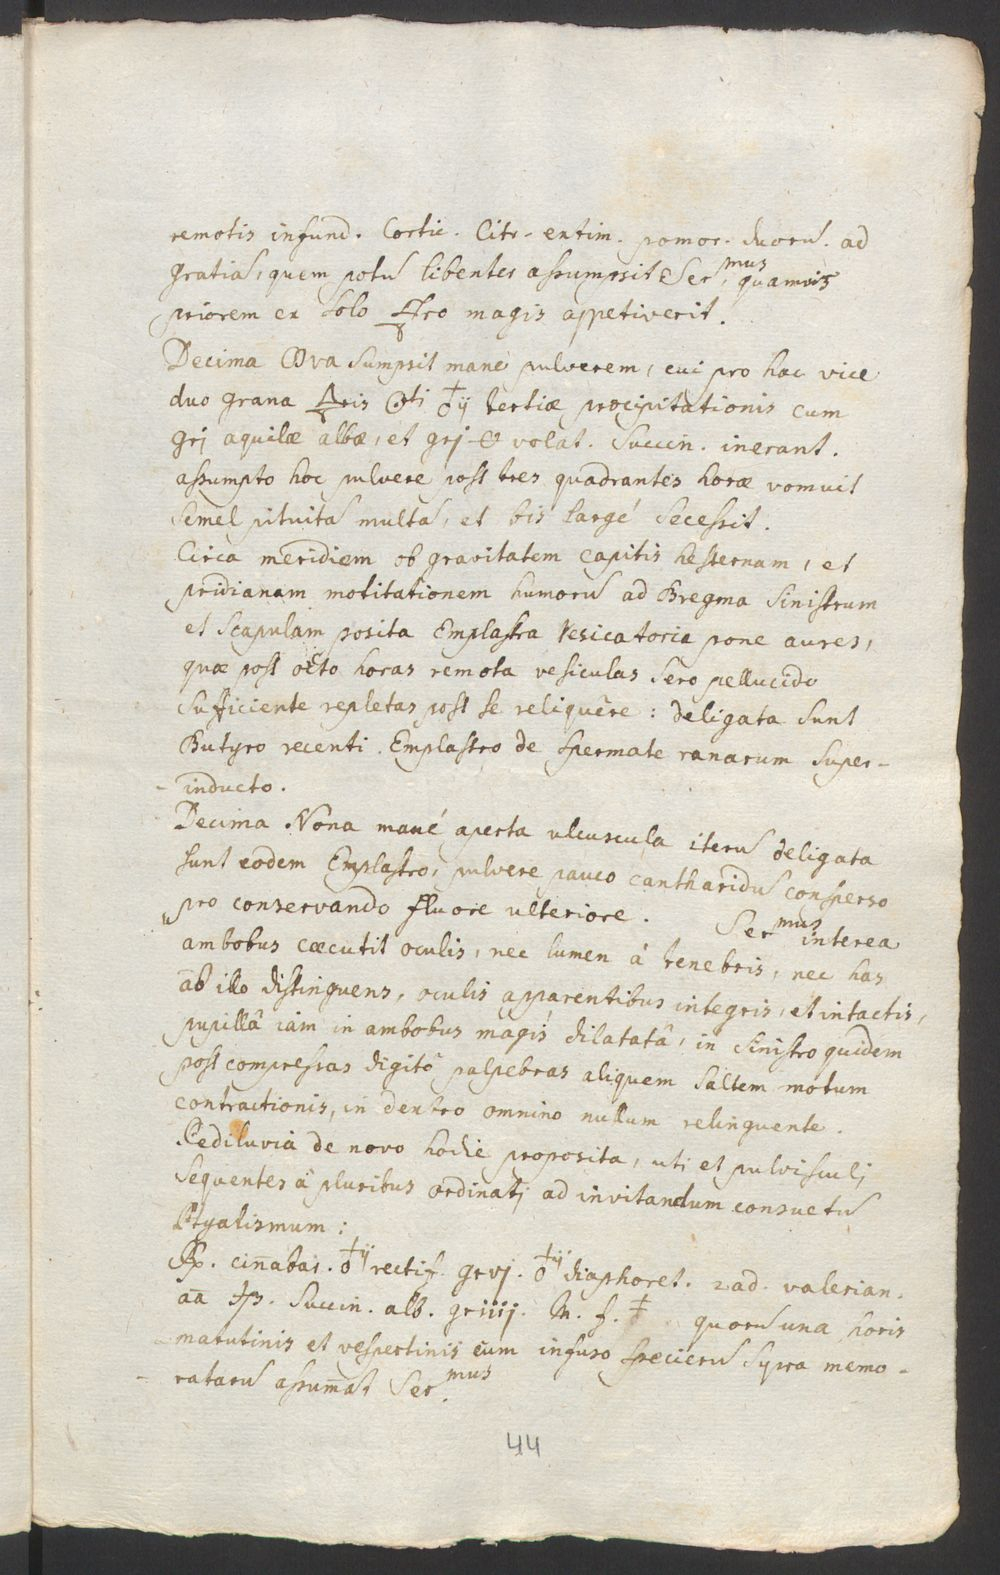 remotis infund. Cortic. Citr. extim. pomor. duorũ. ad
gratiã, quem potũ libenter assumpsit Ser.mus, quamvis
priorem ex solo 🜍ro magis appetiverit.
Decima 8va sumpsit manè pulverem, cui pro hac vice
duo grana ris ti ♁ij tertiæ præcipitationis cum
grj aquilæ albæ, et grj volat. Succin. inerant.
assumpto hoc pulvere post tres quadrantes horæ vomuit
semel pituitã multã, et bis largé secessit.
Circa meridiem ob gravitatem capitis hesternam, et
pridianam motitationem humorũ ad Bregma sinistrum
et scapulam posita Emplastra vesicatoria pone aures,
quæ post octo horas remota vesiculas sero pellucido
sufficiente repletas post se reliquêre: deligata sunt
Butyro recenti. Emplastro de spermate ranarum super-
-inducto.
Decima Nona mané aperta ulcuscula iterũ deligata
sunt eodem Emplastro, pulvere pauco cantharidũ consperso
pro conservando fluore ulteriore. Ser.mus interea
ambobus cæcutit oculis, nec lumen à tenebris, nec has
ab illo distinguens, oculis apparentibus integris, et intactis,
pupillâ iam in ambobus magis dilatatâ, in sinistro quidem
post compressas digitô palpebras aliquem saltem motum
contractionis, in dextro omnino nullum relinquente.
Pediluvia de novo hodie proposita, uti et pulvisculj
sequentes à pluribus ordinatj ad invitandum consuetũ
Ptyalismum:
Rp. cin̄abar. ♁ij rectif. grvj. ♁ij diaphoret. rad. valerian.
aa ß. Succin. alb. griiij. M. f. quorũ una horis
matutinis et vespertinis cum infuso specierũ supra memo-
-ratarũ assum̄at Ser.mus
44